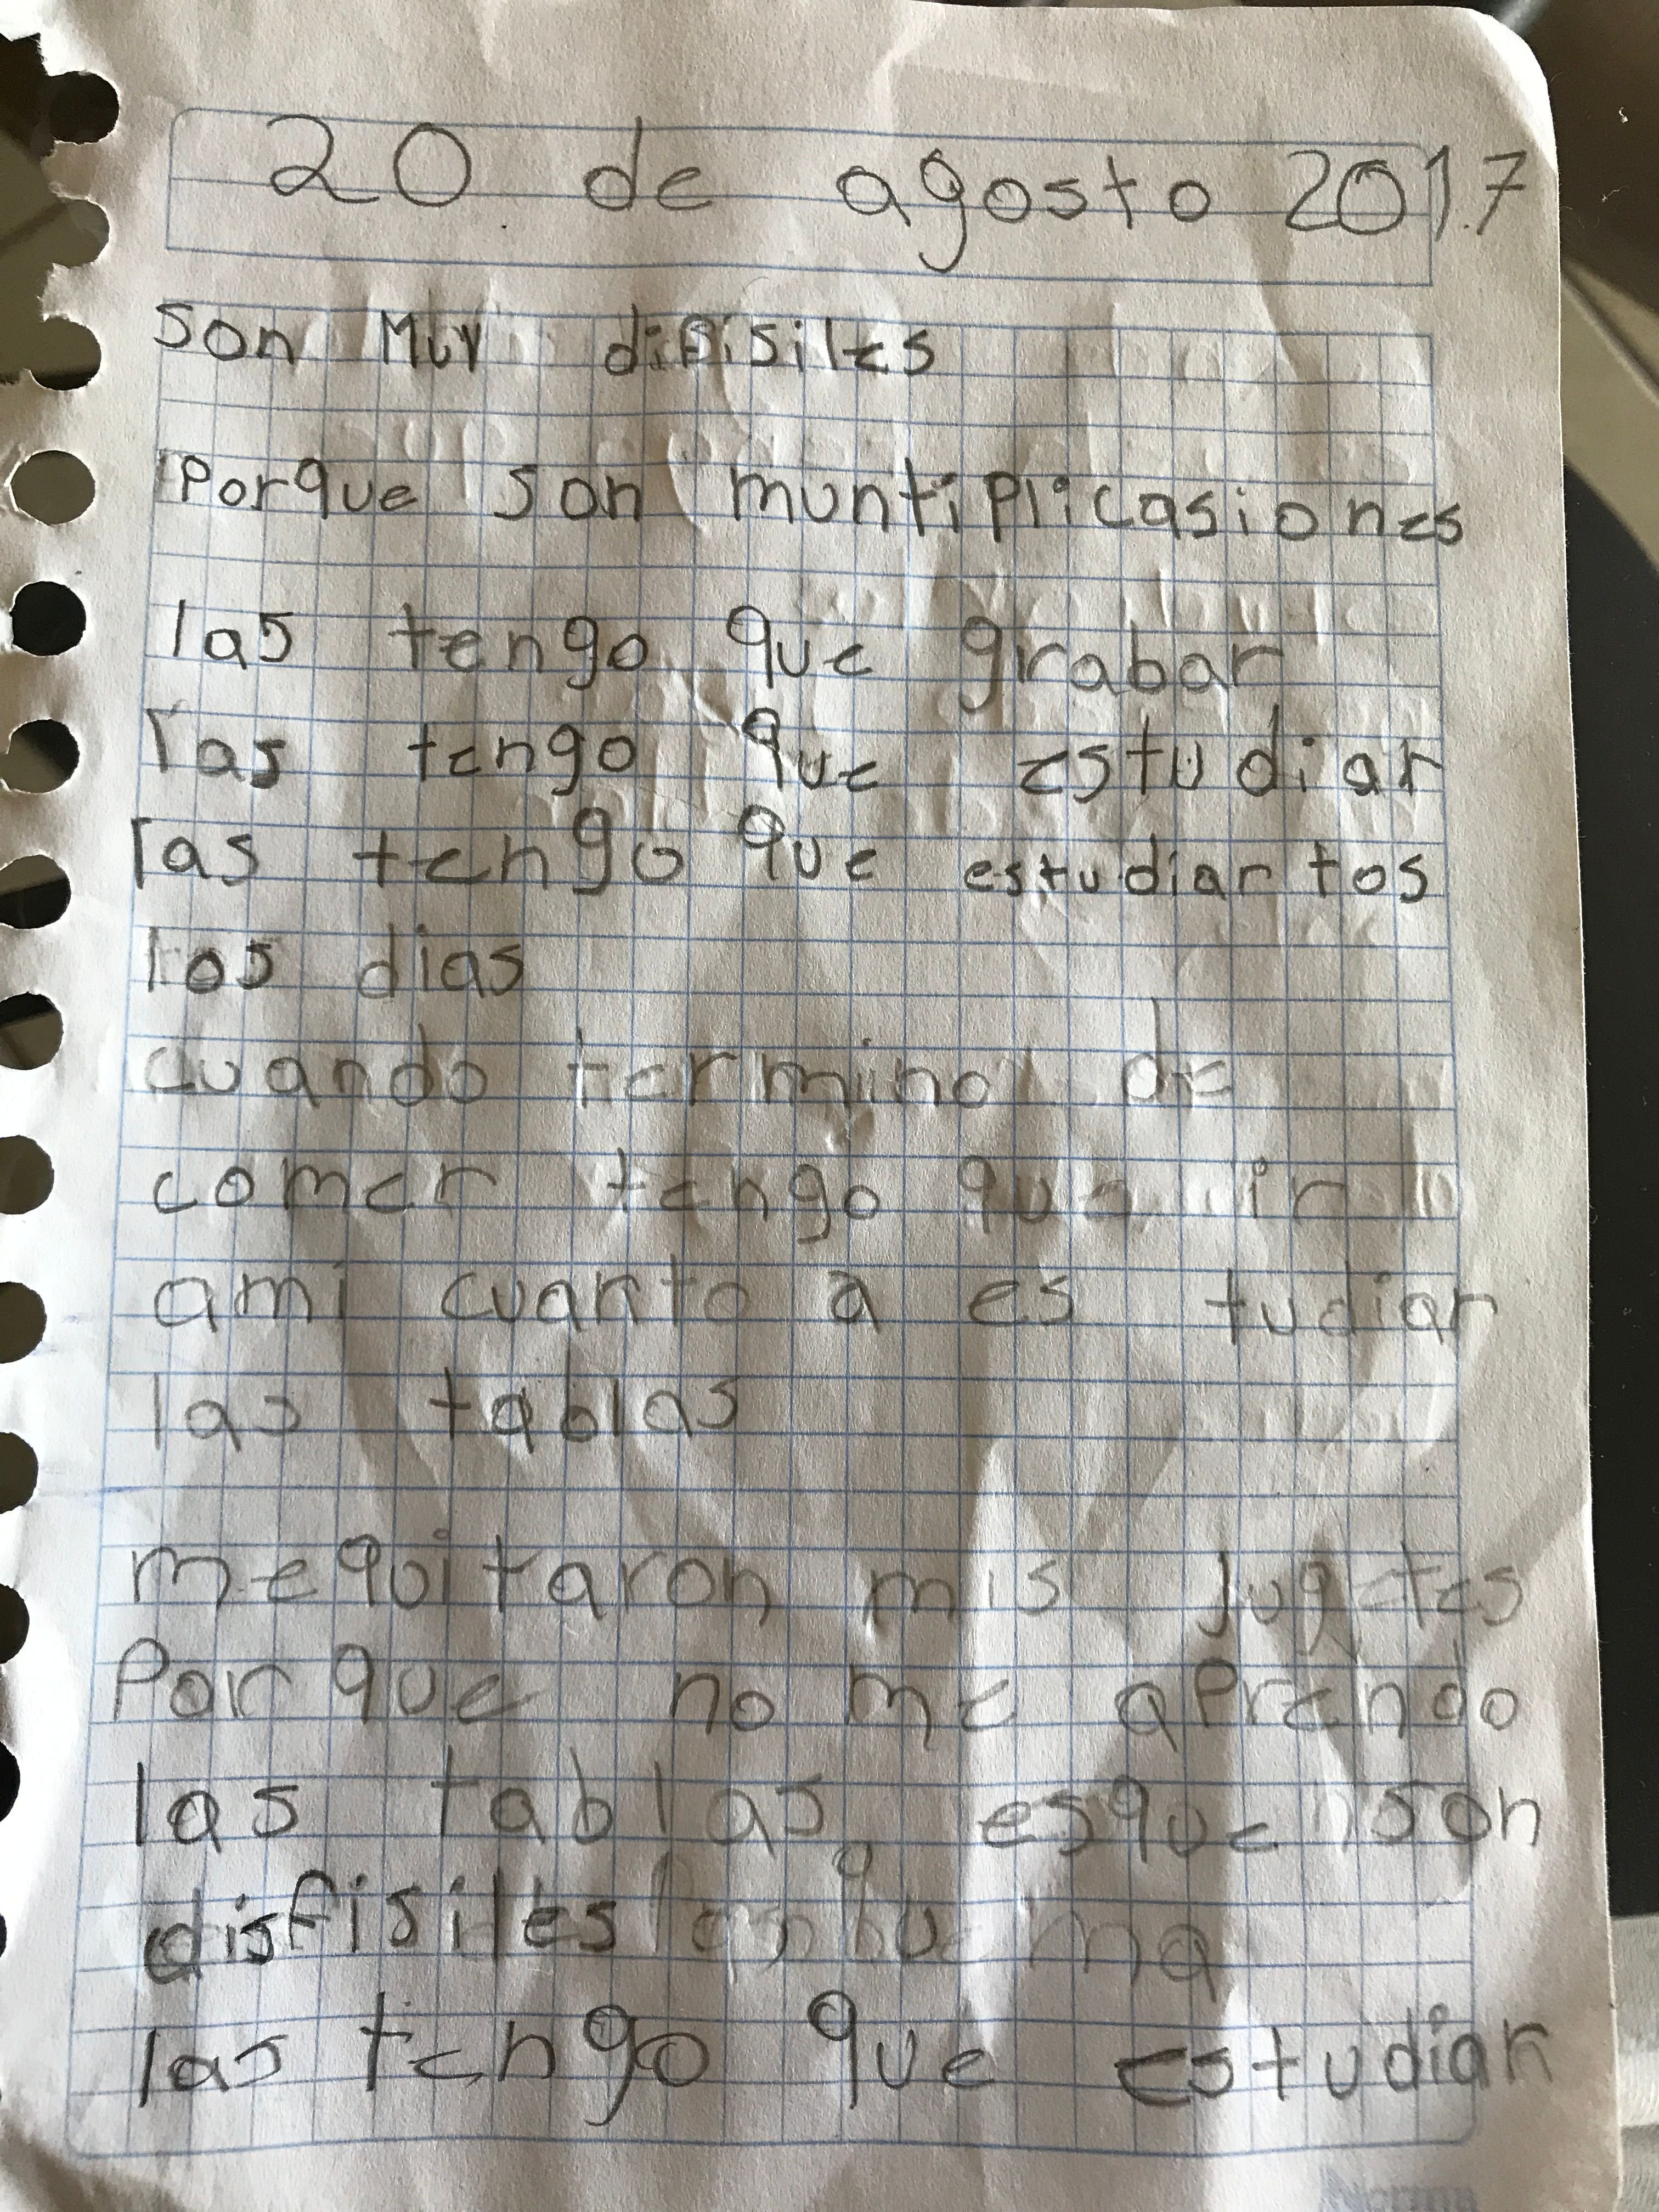 20 de agosto 2017
son muy difisiles
Porque son muntiplicasiones
las tengo que grabar
las tengo que estudiar
las tengo que estudiar tos
los dias
cuando termino de
comer tengo que ir
ami cuarto a es tudiar
las tablas
mequitaron mis jugetes
Por que no me aprendo
las tablas esque son
disfisiles
las tengo que estudiar